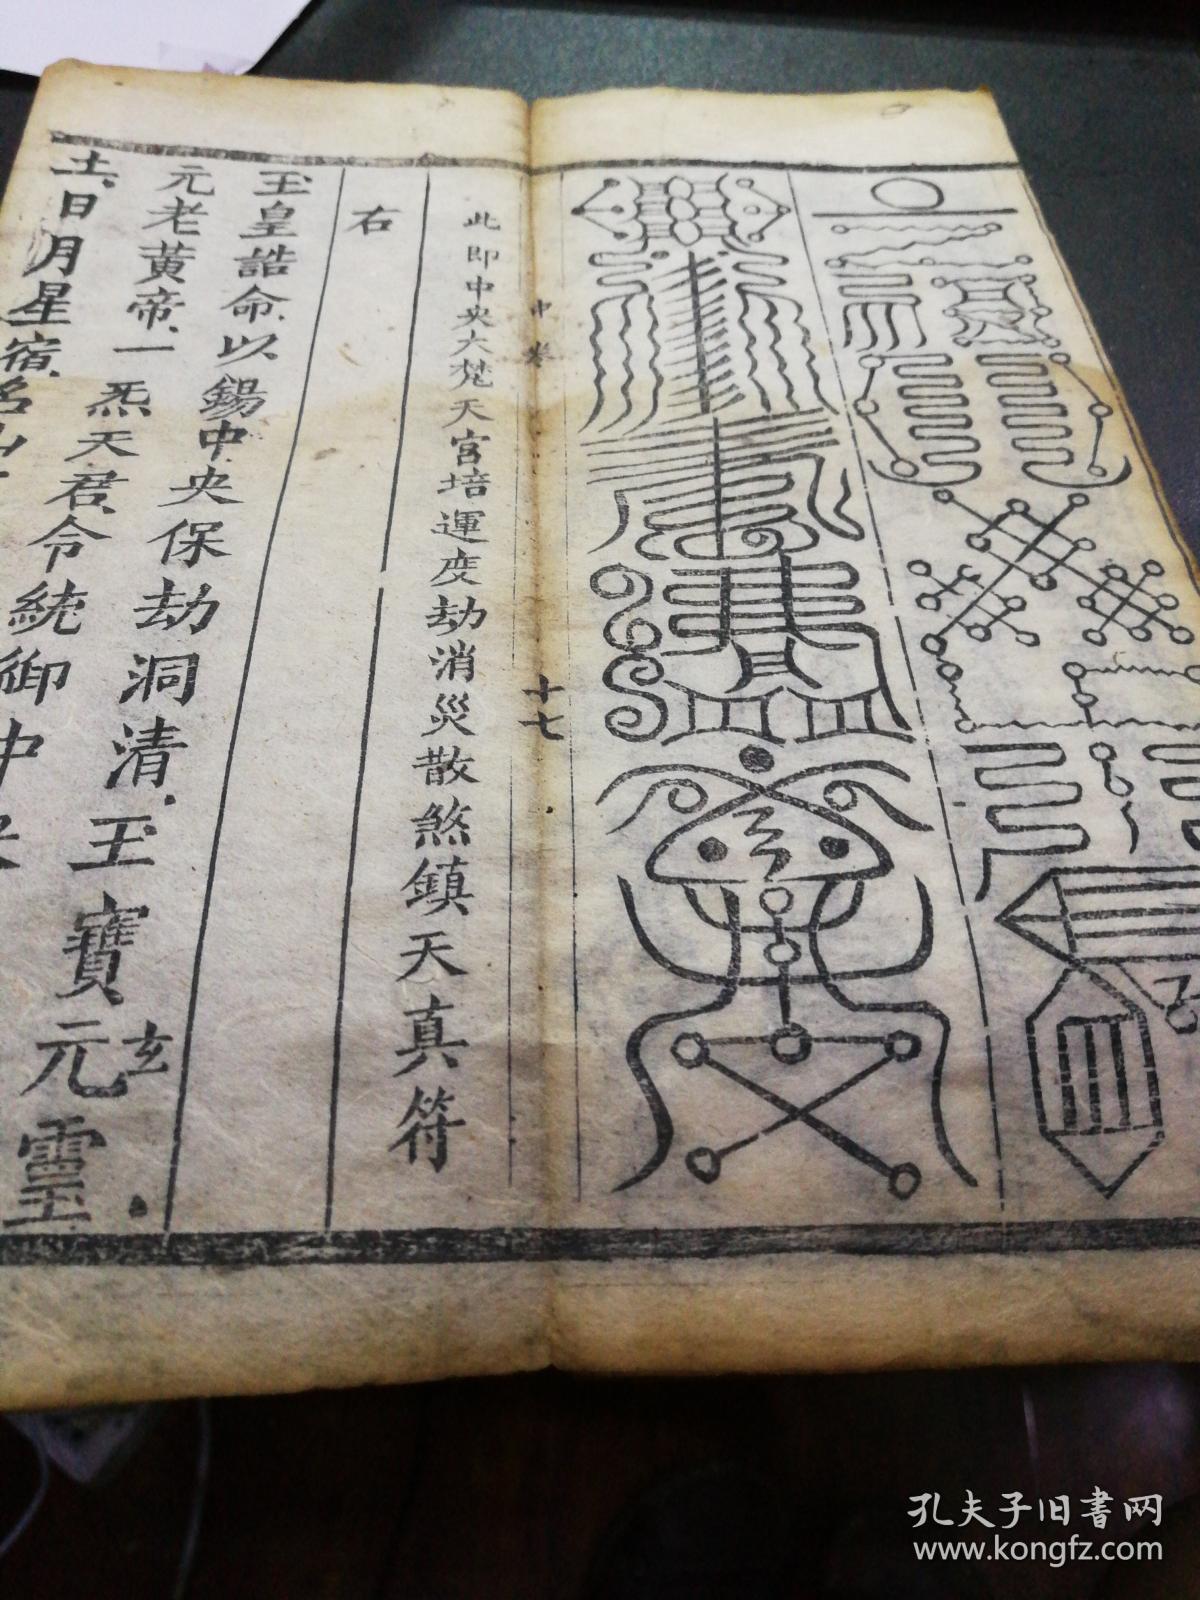 此即中央大梵天宮培運度劫消災散煞鎮天真符
右
玉皇誥命以錫中央保劫洞清玉寶元靈
玄
元老黃帝一炁天君令統御中
土日月星宿名山
中卷
十七
孔夫子旧書网
www.kongfz.com